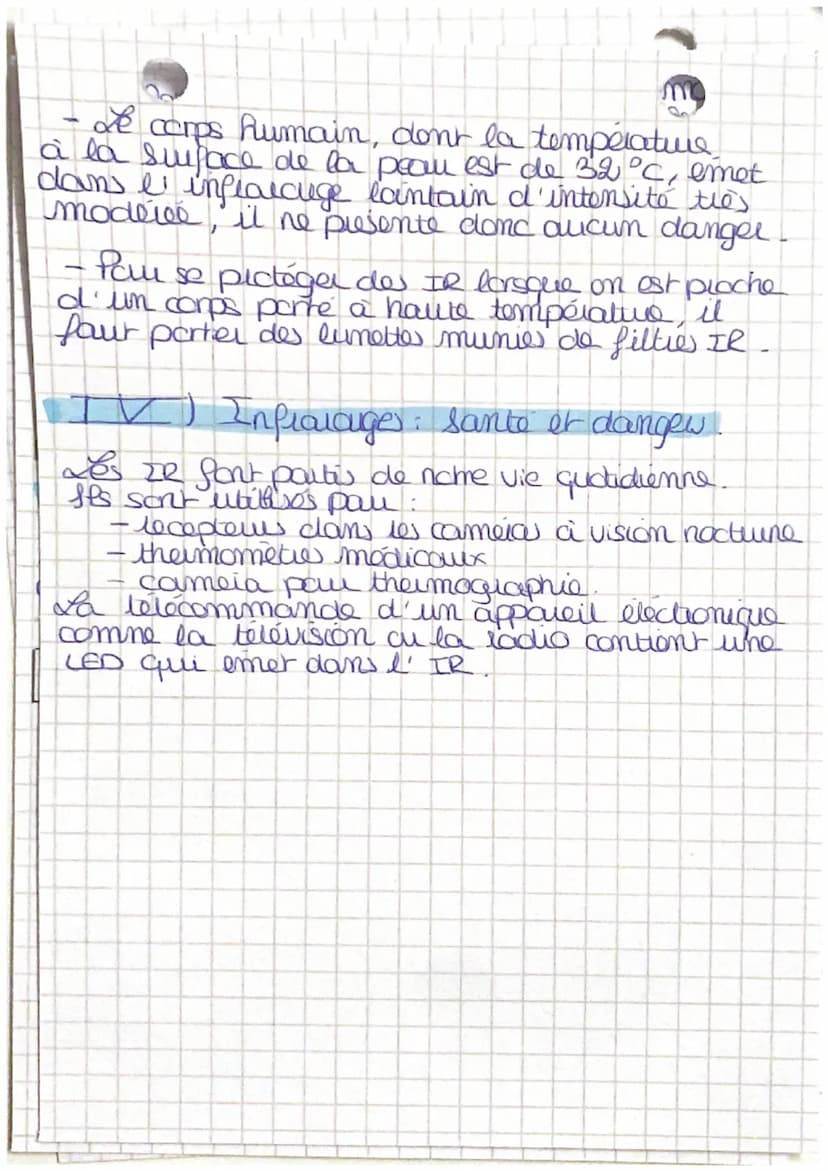 - Le corps humain, dont la température
à la surface de la peau est de 32°C, émet
dans l'infrarouge lointain d'intensité très
modérée, il ne présente donc aucun danger.
- Pour se protéger des IR lorsque on est proche
d'un corps porté à haute température, il
faut porter des lunettes munies de filtres IR.
IV) Infrarouges : santé et dangers.
Les IR font partis de notre vie quotidienne.
Ils sont utilisés pour :
- recepteurs dans les caméras à vision nocturne
- thermomètres médicaux
- camera pour thermographie.
La télécommande d'un appareil électronique
comme la télévision ou la radio contient une
LED qui émet dans l'IR.